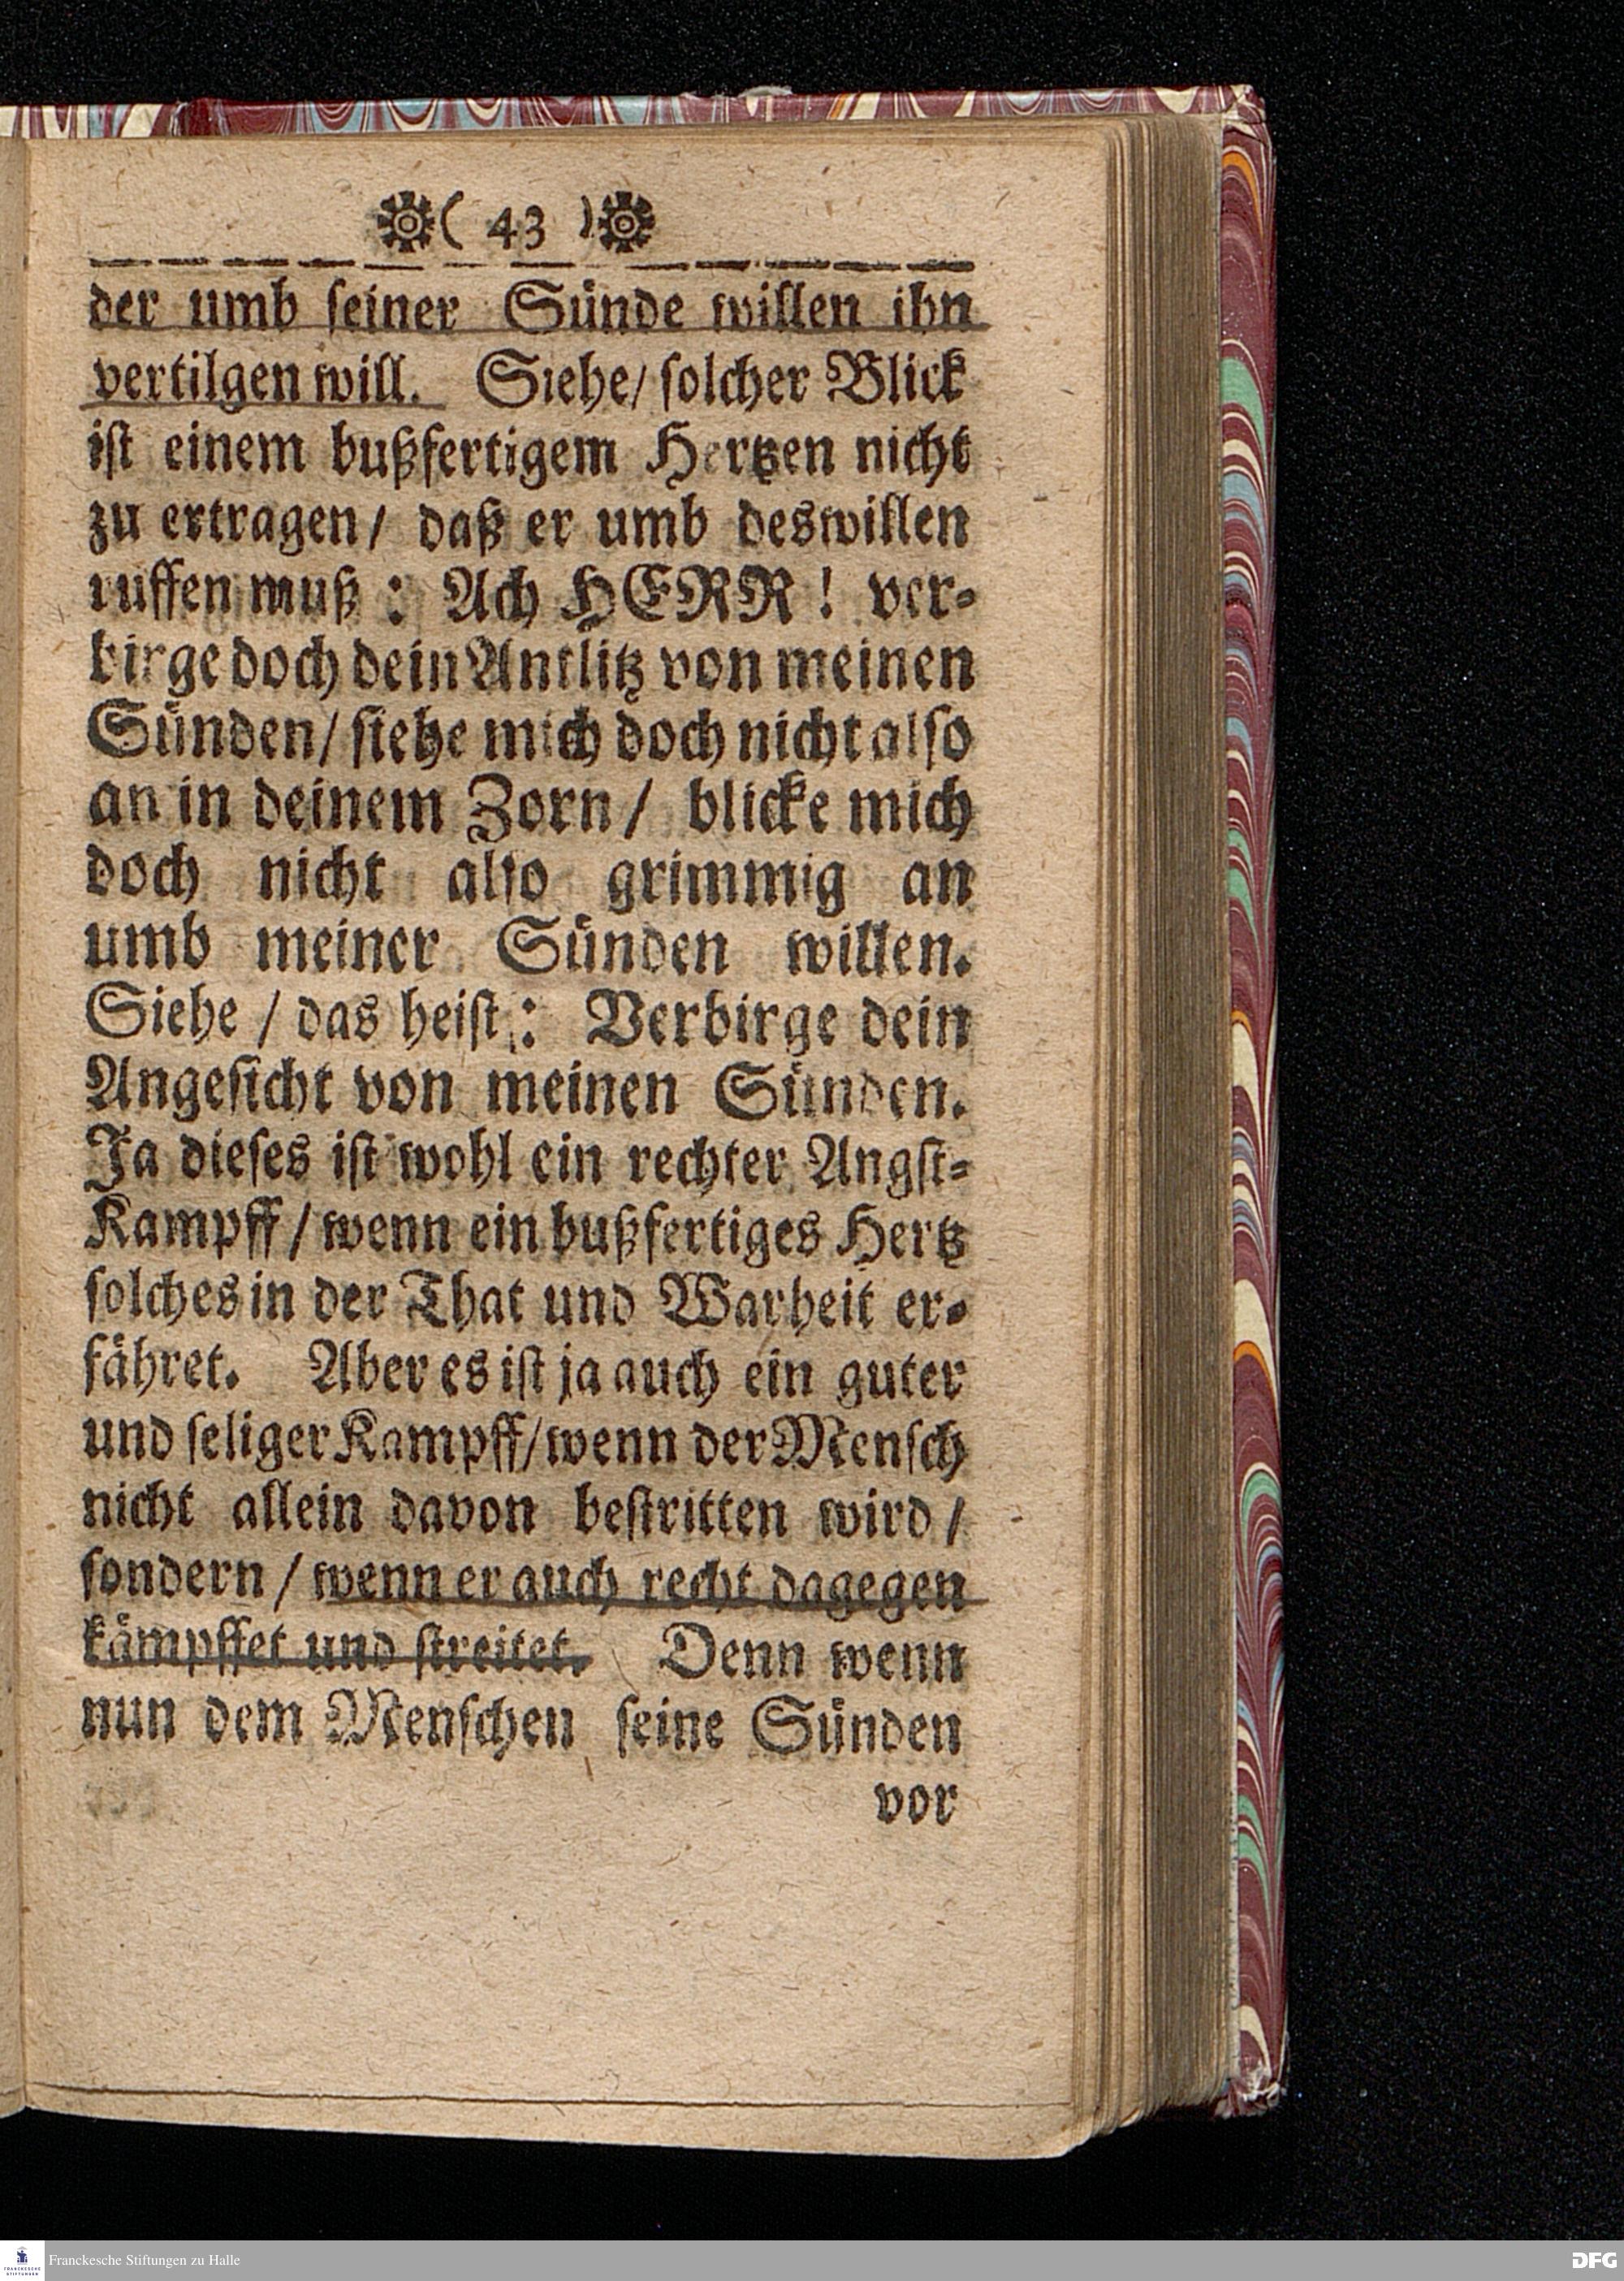 ( 43 )
der umb seiner Sünde willen ihn
vertilgen will. Siehe/ solcher Blick
ist einem bußfertigem Hertzen nicht
zu ertragen/ daß er umb deswillen
ruffen muß : Ach HERR ! ver-
birge doch dein Antlitz von meinen
Sünden/ siehe mich doch nicht also
an in deinem Zorn/ blicke mich
doch nicht also grimmig an
umb meiner Sünden willen.
Siehe / das heist : Verbirge dein
Angesicht von meinen Sünden.
Ja dieses ist wohl ein rechter Angst-
Kampff/ wenn ein bußfertiges Hertz
solches in der That und Warheit er-
fähret. Aber es ist ja auch ein guter
und seliger Kampff/ wenn der Mensch
nicht allein davon bestritten wird /
sondern / wenn er auch recht dagegen
kämpffet und streitet. Denn wenn
nun dem Menschen seine Sünden
vor
Franckesche Stiftungen zu Halle
DFG